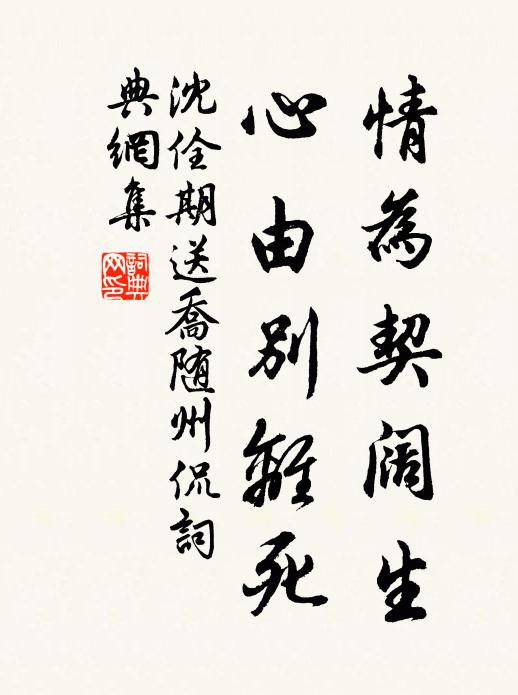 情為契阔生
心由別離死
沈佺期送喬随州侃詞
典網集
詞典网印